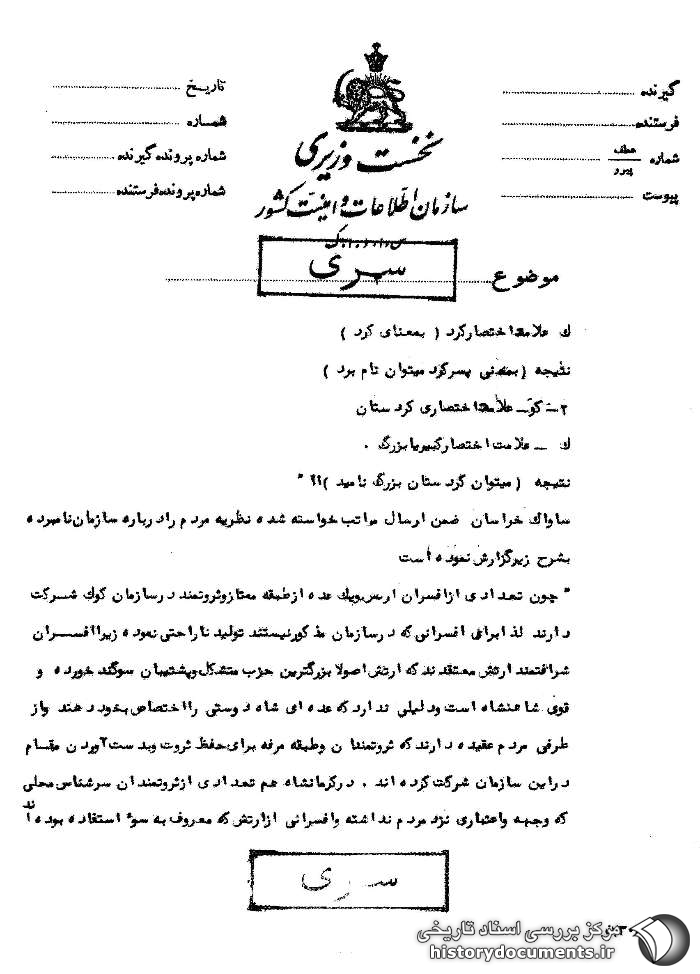 گیرنده
فرستنده
شماره عطف پیرو
پیوست
نخست وزیری
سازمان اطلاعات و امنیت کشور
س.ا.و.ا.ک
تاریخ
شماره
شماره پرونده گیرنده
شماره پرونده فرستنده
سری
موضوع
ك علامت اختصار کرد ( بمعنای کرد )
نتیجه ( بمعنی پسر کرد میتوان نام برد )
۲- کو - علامت اختصاری کردستان
ك - علامت اختصار کبیر یا بزرگ .
نتیجه ( میتوان کردستان بزرگ نامید )!! "
ساواك خراسان ضمن ارسال مراتب خواسته شده نظریه مردم را درباره سازمان نامبرده
بشرح زیر گزارش نموده است
" چون تعدادی از افسران ارتش و یك عده از طبقه ممتاز و ثروتمند در سازمان کوك شرکت
دارند لذا برای افسرانی که در سازمان مذکور نیستند تولید ناراحتی نموده زیرا افسران
شرافتمند ارتش معتقدند که ارتش اصولا بزرگترین حزب متشکل و پشتیبان سوگند خورده و
قوی شاهنشاه است و دلیلی ندارد که عده ای شاه دوستی را اختصاص بخود دهند و از
طرفی مردم عقیده دارند که ثروتمندان و طبقه مرفه برای حفظ ثروت و بدست آوردن مقام
در این سازمان شرکت کرده اند . در کرمانشاه هم تعدادی از ثروتمندان سرشناس محلی
که وجهه و اعتباری نزد مردم نداشته و افسرانی از ارتش که معروف به سوء استفاده بوده اند
سری
مرکز بررسی اسناد تاریخی
historydocuments.ir